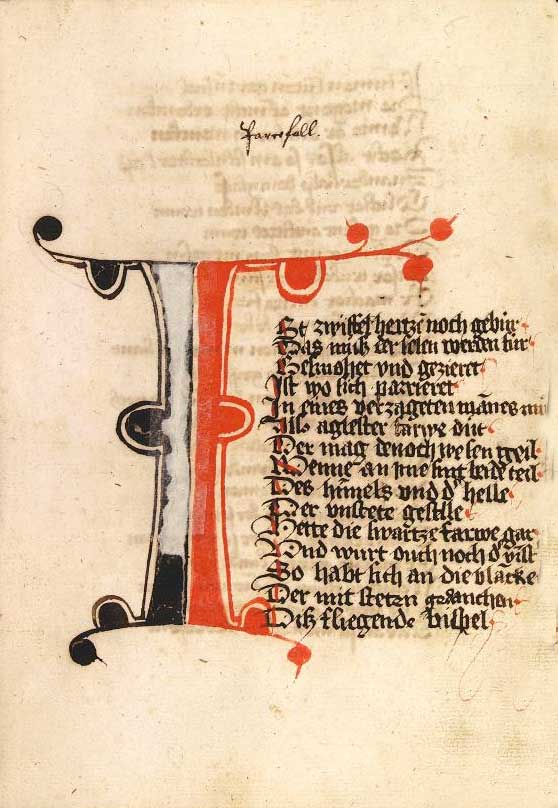 Parcifall.
ISt zwiffel hertzē noch gebur
Das muß der selen werden sur
Gesmohet vnd gezieret
Ist wo sich parrieret
In eines verzageten mānes mu
Als aglester farwe dut
Der mag denoch wesen geil
Wenne an ime sint beide teil
Des hīmels vnd d' helle
Der vnstete geselle
Hette die swartze farwe gar
Vnd wurt ouch noch d'
So habt sich an die blancke
Der mit steten gedancken
Diß fliegende bispel